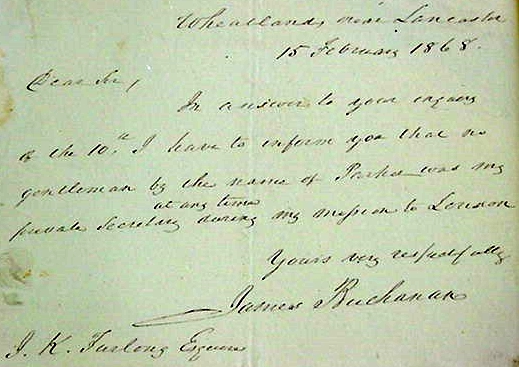 Wheatland, near Lancaster
15 February 1868.
Dear Sir,
In answer to your enquiry
of the 10th. I have to inform you that no
gentleman by the name of Parker was my
at any time
private Secretary during my mission to London
Yours very respectfully
James Buchanan
J. K. Furlong Esquire